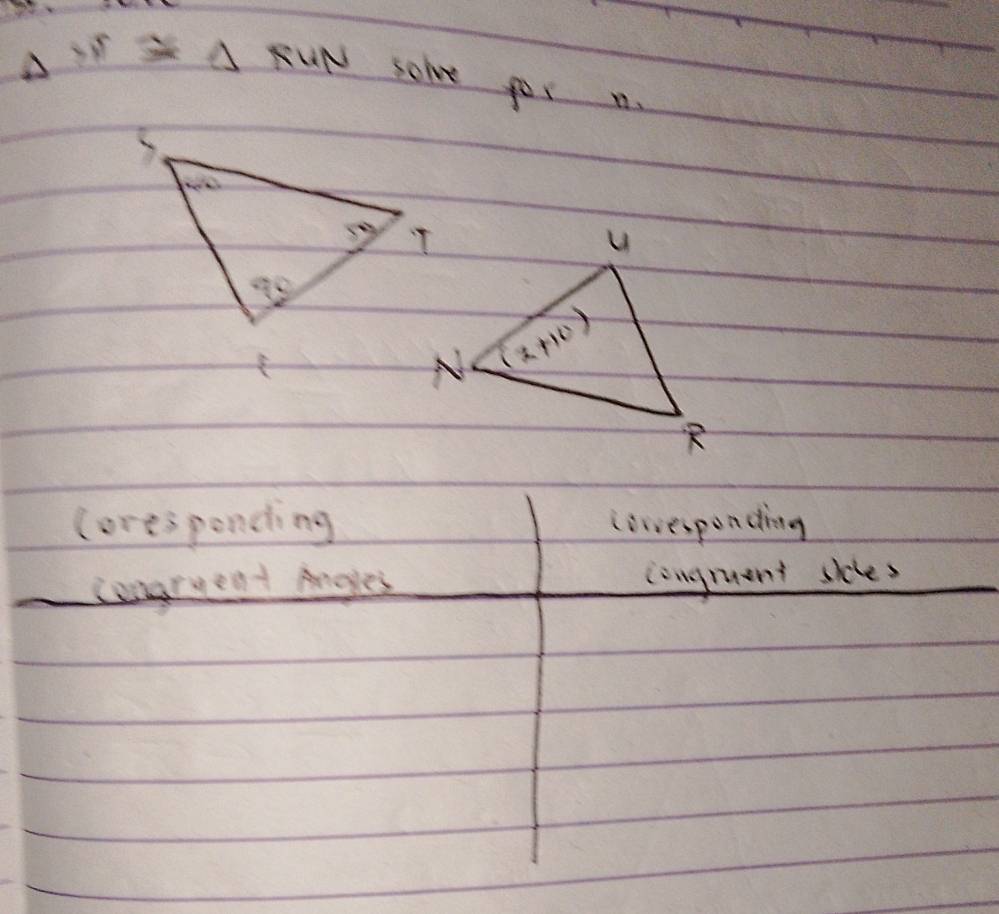 Δ ≅ Δ RUN solve for n.
S
T
50
U
N
(2+10)
R
Coresponding
congruent Angles
corresponding
congruent sides